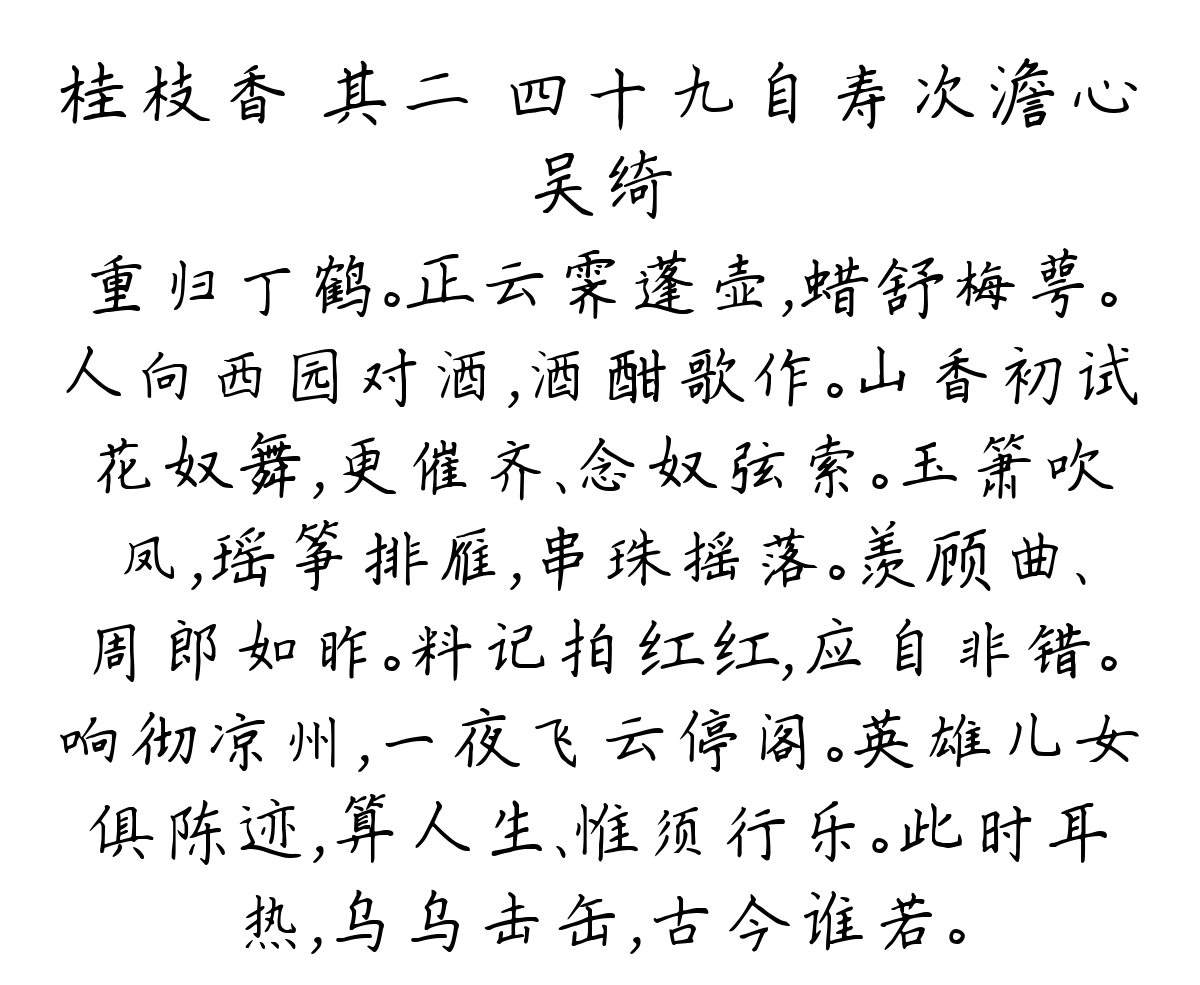 桂枝香 其二 四十九自寿次澹心
吴绮
重归丁鹤。正云霁蓬壶,蜡舒梅萼。
人向西园对酒,酒酣歌作。山香初试
花奴舞,更催齐、念奴弦索。玉箫吹
凤,瑶筝排雁,串珠摇落。羡顾曲、
周郎如昨。料记拍红红,应自非错。
响彻凉州,一夜飞云停阁。英雄儿女
俱陈迹,算人生、惟须行乐。此时耳
热,乌乌击缶,古今谁若。